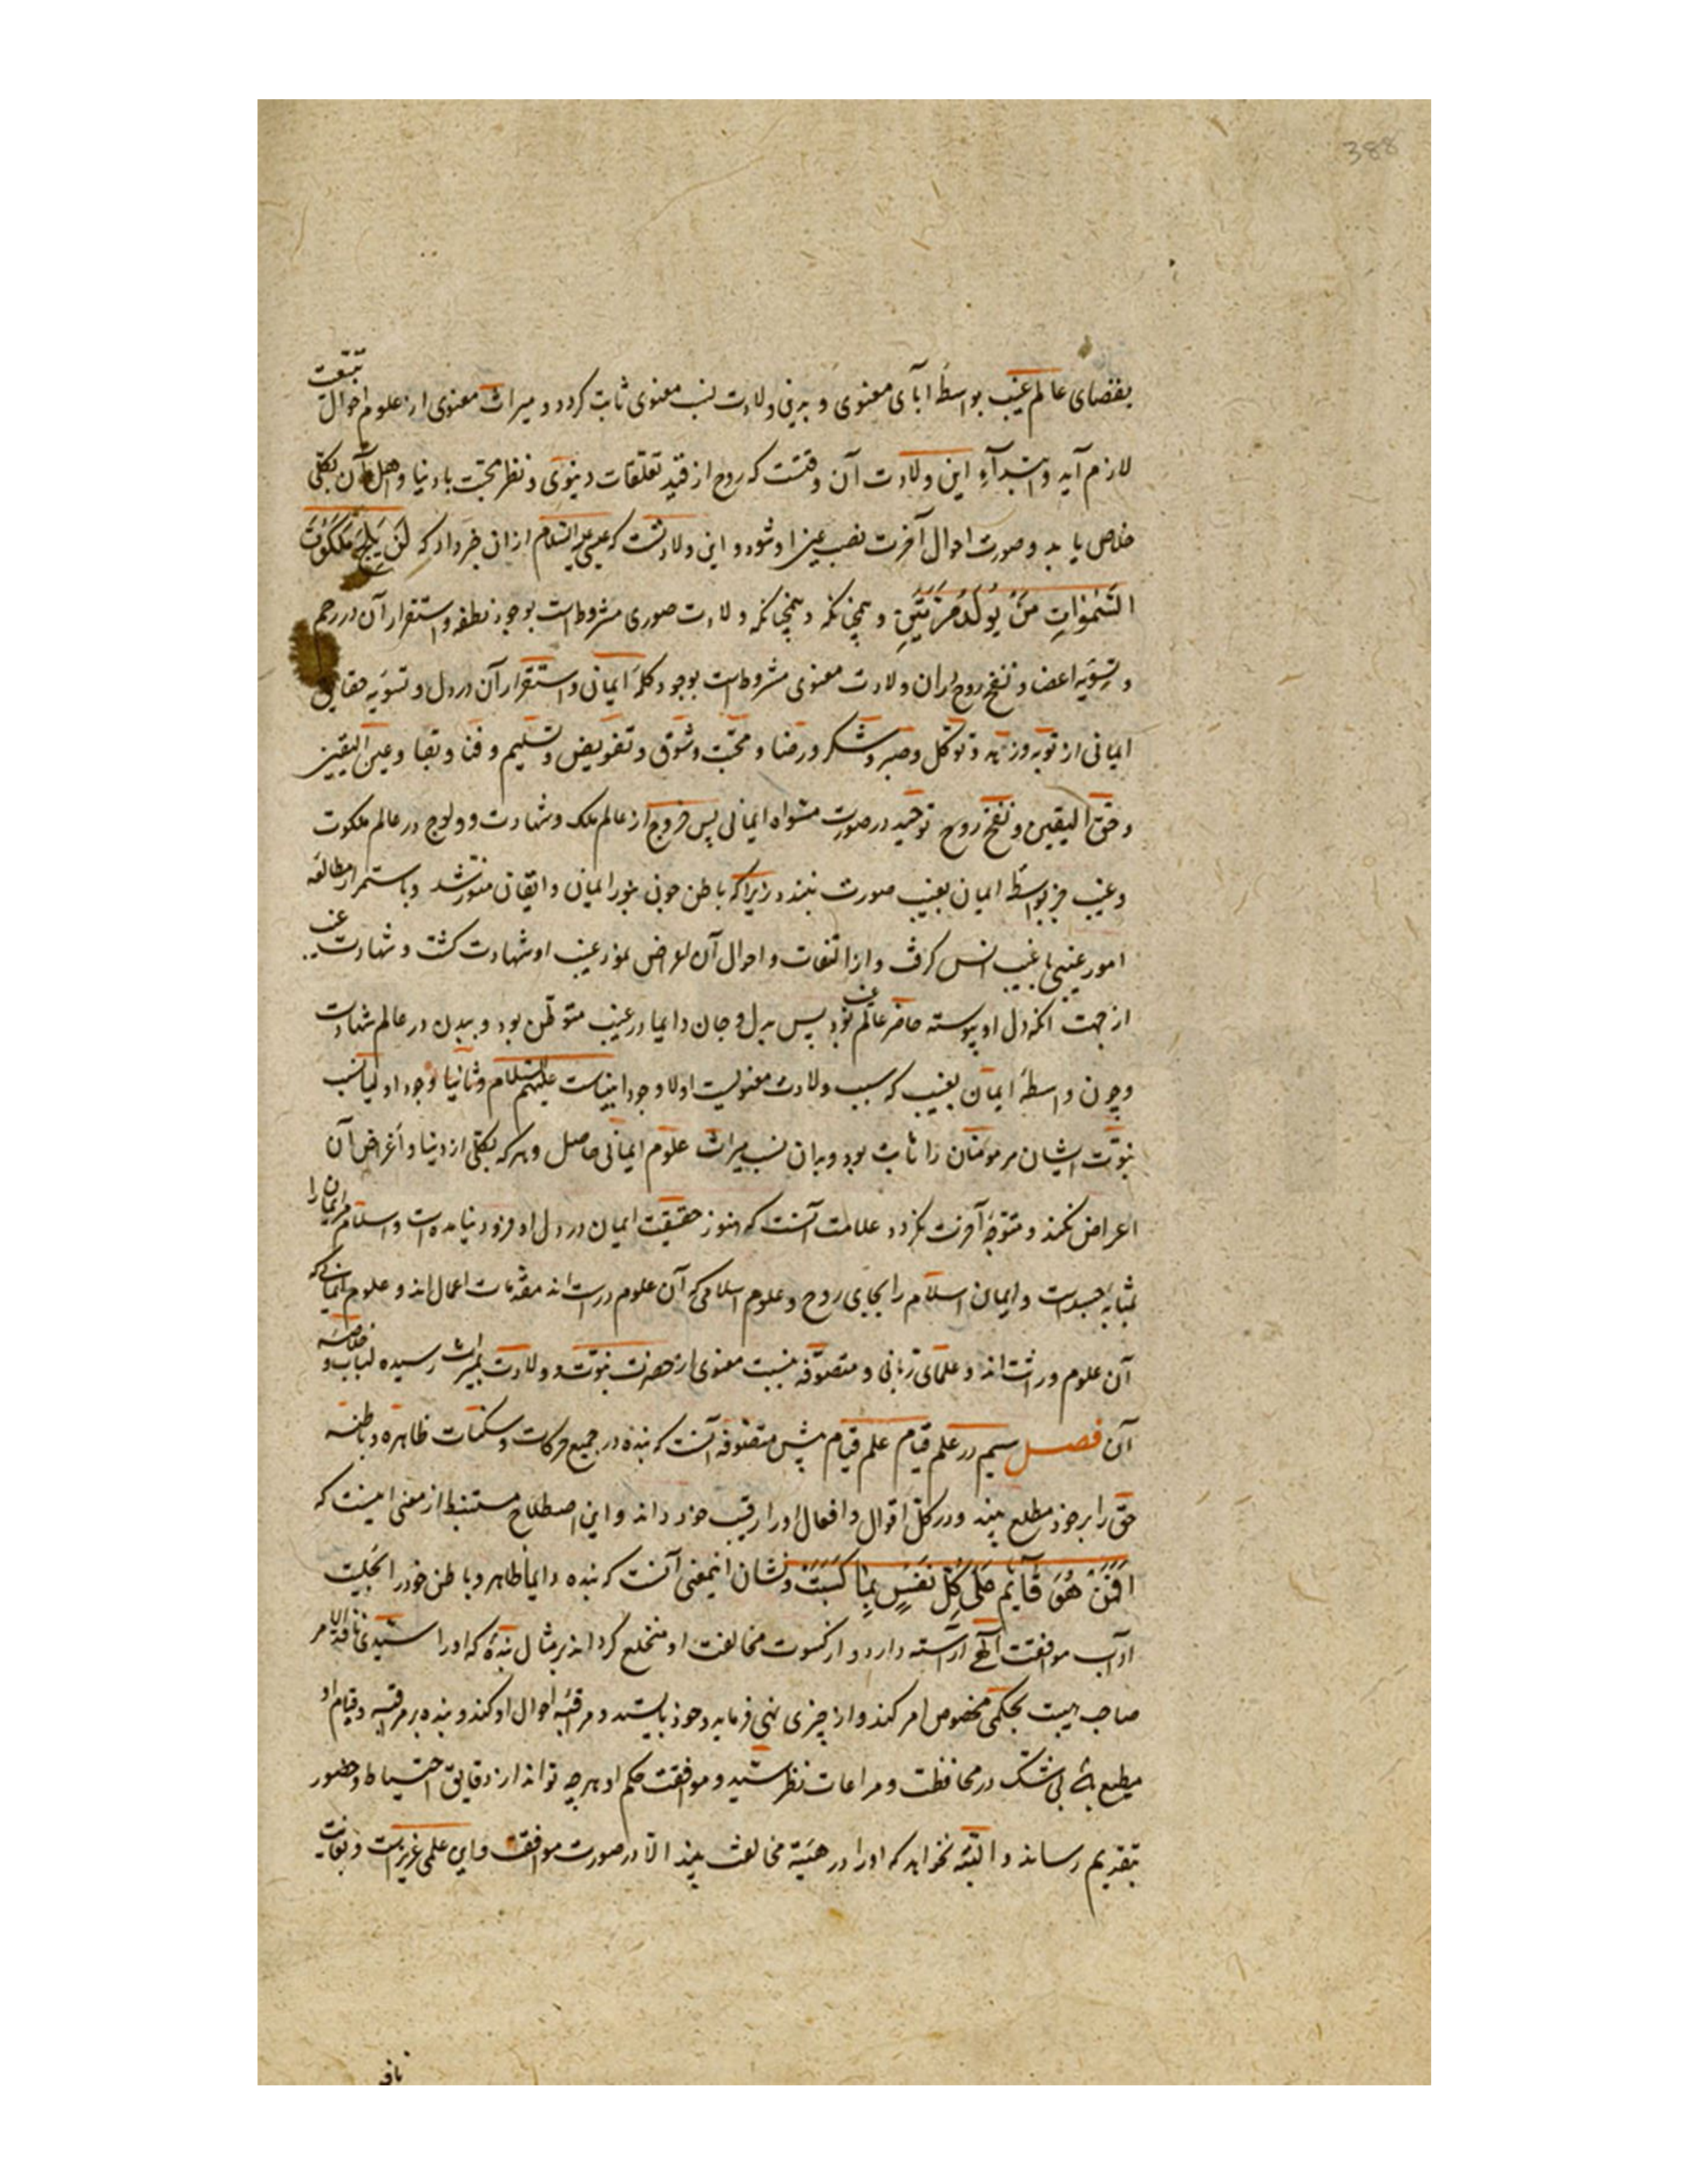 388
بفضای عالم غیب بواسطهٔ ابآی معنوی و برینی ولادت نسب معنوی ثابت کردد و میراث معنوی از علوم احوال تبعیت
لازم آید و ابتدآءِ این ولادت آن وقتست که روح از قید تعلّقات دنیوی و نظر محبّت با دنیا و اهل آن بکلّی
خلاص یابد و صورت احوال آخرت نصب عین او شود و این ولادتست که عیسی علیه السّلام ازان خبر داد که لَنْ یَلِجَ مَلَکُوْتَ
السَّمٰوَاتِ مَنْ لَمْ یُوْلَدْ مَرَّتَیْنِ و همچنانکه و همچنانکه ولادت صوری مشروطست بوجود نطفه و استقرار آن در رحم
و تسویهٔ اعضا و نفخ روح دران ولادت معنوی مشروطست بوجود کلمهٔ ایمانی و استقرار آن در دل و تسویهٔ حقایق
ایمانی از توبه و زهد و توکّل و صبر و شکر و رضا و محبّت و شوق و تفویض و تسلیم و فنا و بقا و عین الیقین
و حقّ الیقین و نفخ روح توحید در صورت مسواه ایمانی پس خروج از عالم ملک و شهادت و ولوج در عالم ملکوت
و غیب جز بواسطهٔ ایمان بغیب صورت نبندد زیرا که باطن چون بنور ایمان و ایقان منوّر شد و باستمرار مطالعهٔ
امور غیبی با غیب انس کرفت و از التفات و احوال آن اعراض نمود غیب او شهادت کشت و شهادت غیب
از جهت انکه دل او پیوسته حاضر عالم غیب بود پس بدل و جان دایما در غیب متوطّن بود و ببدن در عالم شهادت
و چون واسطهٔ ایمان بغیب که سبب ولادت معنویست اولا وجود انبیاست علیهم السّلام و ثانیا وجود اولیا نسب
نبوّت ایشان مر مومنان را ثابت بود و بدان نسب میراث علوم ایمانی حاصل و هر که بکلّی از دنیا و اغراض آن
اعراض نکند و متوجّه آخرت نکردد علامت آنست که هنوز حقیقت ایمان در دل او فرود نیامده است و اسلام مر ایمان را
بمثابهٔ جسدست و ایمان اسلام را بجای روح و علوم اسلامی که آن علوم دراست اند مقدّمات اعمال اند و علوم ایمانی که
آن علوم وراثت اند و علمای ربانی و متصوّفه بنسبت معنوی از حضرت نبوّت و ولادت بمیراث رسیده لباب و خلاصهٔ
آن فصل سیم در علم قیام علم قیام پیش متصوّفه آنست که بنده در جمیع حرکات و سکنات ظاهره و باطنه
حق را بر خود مطلع بیند و در کلّ اقوال و افعال او را رقیب خود داند و این اصطلاح مستنبط از معنی اینست که
اَفَمَنْ هُوَ قَآئِمٌ عَلٰی کُلِّ نَفْسٍ بِمَا کَسَبَتْ و نشان اینمعنی آنست که بنده دایماً ظاهر و باطن خود را بحلیت
اداب موافقت آلهی آراسته دارد و از کسوت مخالفت او منخلع کرداند بر مثال بندهٔ که او را سیّدی نافذ الامر
صاحب هیبت بحکمی مخصوص امر کند و از چیزی نهی فرماید و خود بایستد و مراقبهٔ احوال او کند و بنده بر مراقبه و قیام او
مطیع باشد بی شک در محافظت و مراعات نظر سیّد و موافقت حکم او هرچه تواند از دقایق احتیاط و حضور
بتقدیم رساند و البتّه نخواهد که او را در هیئة مخالفت بیند الّا در صورت موافقت و این علمی عزیزست و بغایت
نافع